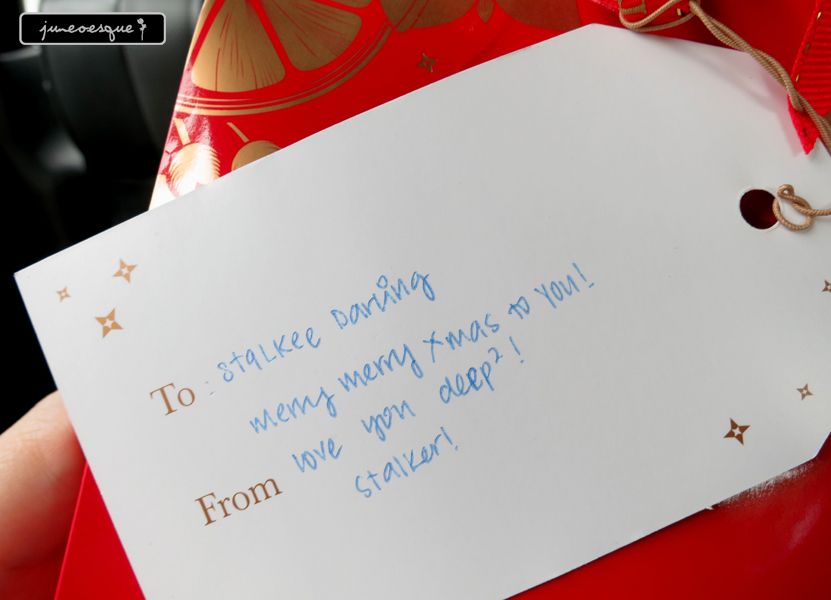 juneoesque
To : stalkee Darling
merry merry xmas to you!
love you deep²!
From stalker!